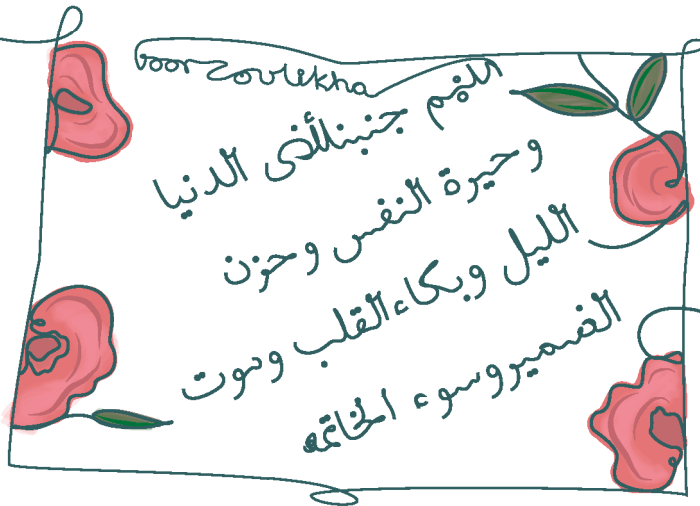 voor Zoulikha
اللهم جنبنا أذى الدنيا
وحيرة النفس وحزن
الليل وبكاء القلب وموت
الضمير وسوء الخاتمه